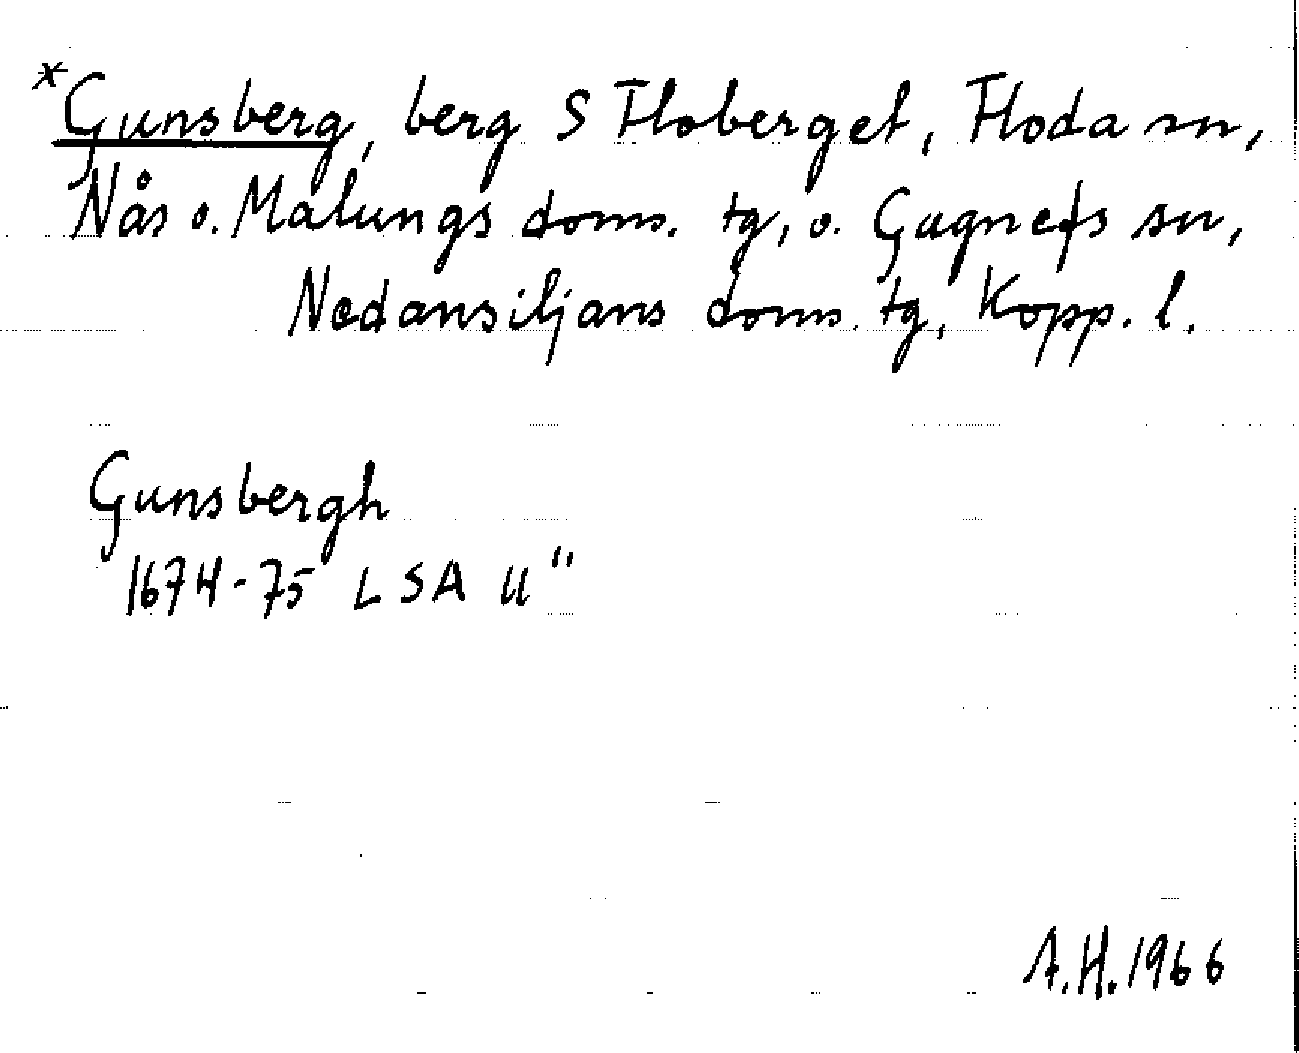 *Gunsberg, berg S Floberget, Floda sn,
Nås o. Malungs doms. tg, o. Gagnefs sn,
Nedansiljans doms. tg, Kopp. l.
Gunsbergh
1674-75 LSA U"
A.H. 1966